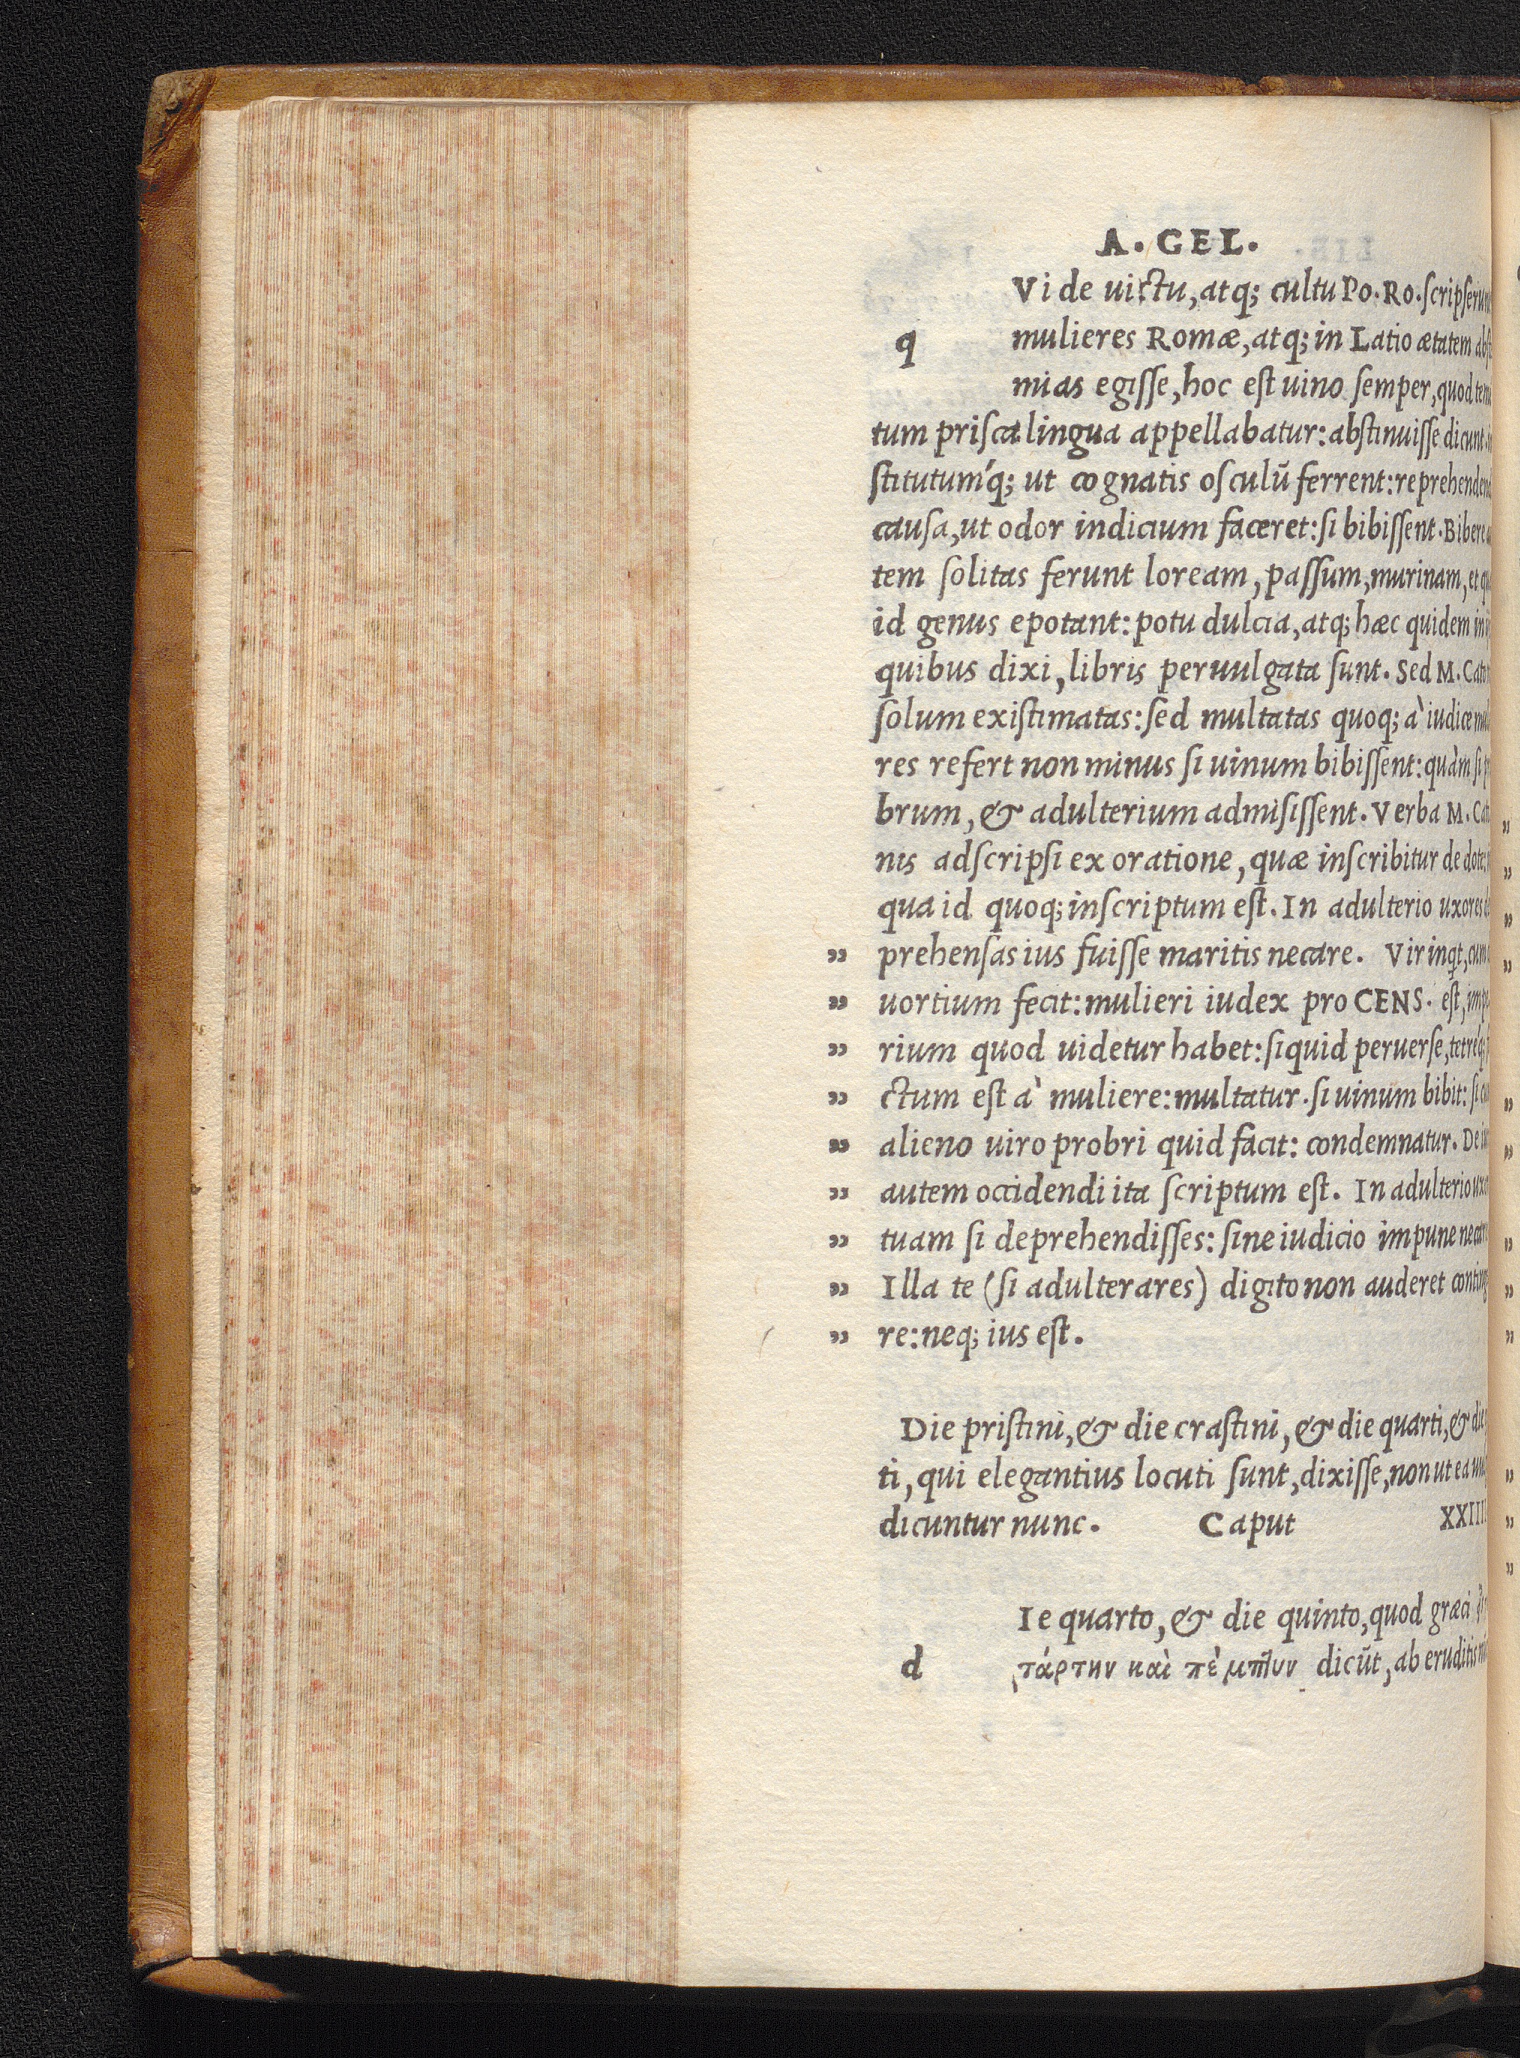 A. GEL.
Vi de uictu, atq; cultu Po. Ro. scripserunt
q mulieres Romæ, atq; in Latio ætatem abste
mias egisse, hoc est uino semper, quod teme
tum prisca lingua appellabatur: abstinuisse dicunt. in
stitutum'q; ut cognatis osculū ferrent: reprehendendi
causa, ut odor indicium faceret: si bibissent. Bibere
tem solitas ferunt loream, passum, murinam, et
id genus epotant: potu dulcia, atq; hæc quidem in
quibus dixi, libris peruulgata sunt. Sed M. Cato
solum existimatas: sed multatas quoq; à iudice
res refert non minus si uinum bibissent: quàm si
brum, & adulterium admisissent. Verba M. Cato
nis adscripsi ex oratione, quæ inscribitur de dote:
qua id quoq; inscriptum est. In adulterio uxores
„ prehensas ius fuisse maritis necare. Vir inqt, cum
„ uortium fecit: mulieri iudex pro CENS. est,
„ rium quod uidetur habet: siquid peruerse, tetréq;
„ ctum est à muliere: multatur. si uinum bibit: si
„ alieno uiro probri quid facit: condemnatur. De
„ autem occidendi ita scriptum est. In adulterio
„ tuam si deprehendisses: sine iudicio impune
„ Illa te (si adulterares) digito non auderet continge
„ re: neq; ius est.
Die pristini, & die crastini, & die quarti, & die
ti, qui elegantius locuti sunt, dixisse, non ut ea
dicuntur nunc. Caput XXIIII
Ie quarto, & die quinto, quod græci
d τάρτην καὶ πέμπτην dicūt, ab eruditis